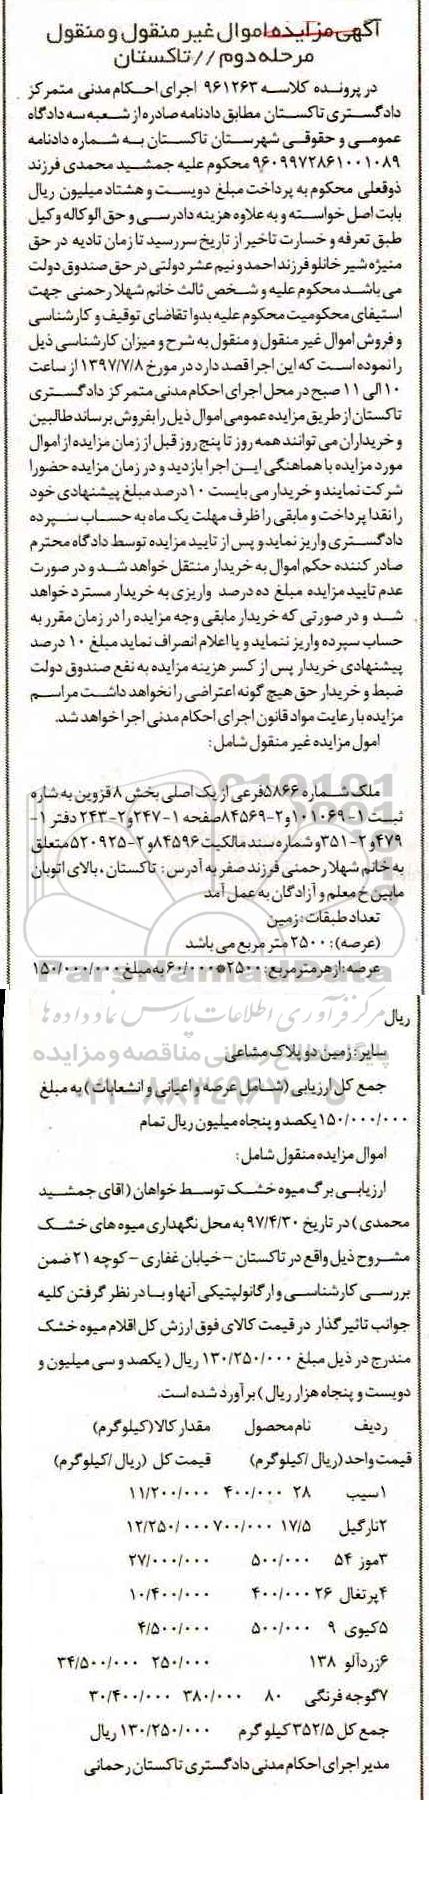 آگهی مزایده اموال غیر منقول و منقول
مرحله دوم // تاکستان
در پرونده کلاسه ۹۶۱۲۶۳ اجرای احکام مدنی متمرکز
دادگستری تاکستان مطابق دادنامه صادره از شعبه سه دادگاه
عمومی و حقوقی شهرستان تاکستان به شماره دادنامه
۹۶۰۹۹۷۲۸۶۱۰۰۱۰۸۹ محکوم علیه جمشید محمدی فرزند
ذوقعلی محکوم به پرداخت مبلغ دویست و هشتاد میلیون ریال
بابت اصل خواسته و به علاوه هزینه دادرسی و حق الوکاله وکیل
طبق تعرفه و خسارت تاخیر از تاریخ سررسید تا زمان تادیه در حق
منیژه شیر خانلو فرزند احمد و نیم عشر دولتی در حق صندوق دولت
می باشد محکوم علیه و شخص ثالث خانم شهلا رحمنی جهت
استیفای محکومیت محکوم علیه بدوا تقاضای توقیف و کارشناسی
و فروش اموال غیر منقول و منقول به شرح و میزان کارشناسی ذیل
را نموده است که این اجرا قصد دارد در مورخ ۱۳۹۷/۷/۸ از ساعت
۱۰ الی ۱۱ صبح در محل اجرای احکام مدنی متمرکز دادگستری
تاکستان از طریق مزایده عمومی اموال ذیل را بفروش برساند طالبین
و خریداران می توانند همه روز تا پنج روز قبل از زمان مزایده از اموال
مورد مزایده با هماهنگی این اجرا بازدید و در زمان مزایده حضورا
شرکت نمایند و خریدار می بایست ۱۰ درصد مبلغ پیشنهادی خود
را نقدا پرداخت و مابقی را ظرف مهلت یک ماه به حساب سپرده
دادگستری واریز نماید و پس از تایید مزایده توسط دادگاه محترم
صادر کننده حکم اموال به خریدار منتقل خواهد شد و در صورت
عدم تایید مزایده مبلغ ده درصد واریزی به خریدار مسترد خواهد
شد و در صورتی که خریدار مابقی وجه مزایده را در زمان مقرر به
حساب سپرده واریز ننماید و یا اعلام انصراف نماید مبلغ ۱۰ درصد
پیشنهادی خریدار پس از کسر هزینه مزایده به نفع صندوق دولت
ضبط و خریدار حق هیچ گونه اعتراضی را نخواهد داشت مراسم
مزایده با رعایت مواد قانون اجرای احکام مدنی اجرا خواهد شد.
امول مزایده غیر منقول شامل:
ملک شماره ۵۸۶۶ فرعی از یک اصلی بخش ۸ قزوین به شاره
ثبت ۱-۱۰۱۰۶۹ و ۲-۸۴۵۶۹ صفحه ۱-۲۴۷ و ۲-۲۴۳ دفتر ۱-
۴۷۹ و ۲-۳۵۱ و شماره سند مالکیت ۸۴۵۹۶ و ۲-۵۲۰۹۲۵ متعلق
به خانم شهلا رحمنی فرزند صفر به آدرس: تاکستان، بالای اتوبان
مابین خ معلم و آزادگان به عمل آمد
تعداد طبقات: زمین
(عرصه): ۲۵۰۰ متر مربع می باشد
عرصه: از هر متر مربع: ۲۵۰۰*۶۰/۰۰۰ به مبلغ ۱۵۰/۰۰۰/۰۰۰
ریال
سایر: زمین دو پلاک مشاعی
جمع کل ارزیابی (شامل عرصه و اعیانی و انشعابات) به مبلغ
۱۵۰/۰۰۰/۰۰۰ یکصد و پنجاه میلیون ریال تمام
اموال مزایده منقول شامل:
ارزیابی برگ میوه خشک توسط خواهان (اقای جمشید
محمدی) در تاریخ ۹۷/۴/۳۰ به محل نگهداری میوه های خشک
مشروح ذیل واقع در تاکستان - خیابان غفاری - کوچه ۲۱ ضمن
بررسی کارشناسی و ارگانولپتیکی آنها و با در نظر گرفتن کلیه
جوانب تاثیر گذار در قیمت کالای فوق ارزش کل اقلام میوه خشک
مندرج در ذیل مبلغ ۱۳۰/۲۵۰/۰۰۰ ریال (یکصد و سی میلیون و
دویست و پنجاه هزار ریال) برآورد شده است.
ردیف نام محصول مقدار کالا (کیلوگرم)
قیمت واحد (ریال /کیلوگرم) قیمت کل (ریال /کیلوگرم)
۱سیب ۲۸ ۴۰۰/۰۰۰ ۱۱/۲۰۰/۰۰۰
۲نارگیل ۱۷/۵ ۷۰۰/۰۰۰ ۱۲/۲۵۰/۰۰۰
۳موز ۵۴ ۵۰۰/۰۰۰ ۲۷/۰۰۰/۰۰۰
۴پرتغال ۲۶ ۴۰۰/۰۰۰ ۱۰/۴۰۰/۰۰۰
۵کیوی ۹ ۵۰۰/۰۰۰ ۴/۵۰۰/۰۰۰
۶زردآلو ۱۳۸ ۲۵۰/۰۰۰ ۳۴/۵۰۰/۰۰۰
۷گوجه فرنگی ۸۰ ۳۸۰/۰۰۰ ۳۰/۴۰۰/۰۰۰
جمع کل ۳۵۲/۵ کیلوگرم ۱۳۰/۲۵۰/۰۰۰ ریال
مدیر اجرای احکام مدنی دادگستری تاکستان رحمانی
ParsNamadData
مرکز فرآوری اطلاعات پارس نماد داده ها
پایگاه اطلاع رسانی مناقصه و مزایده